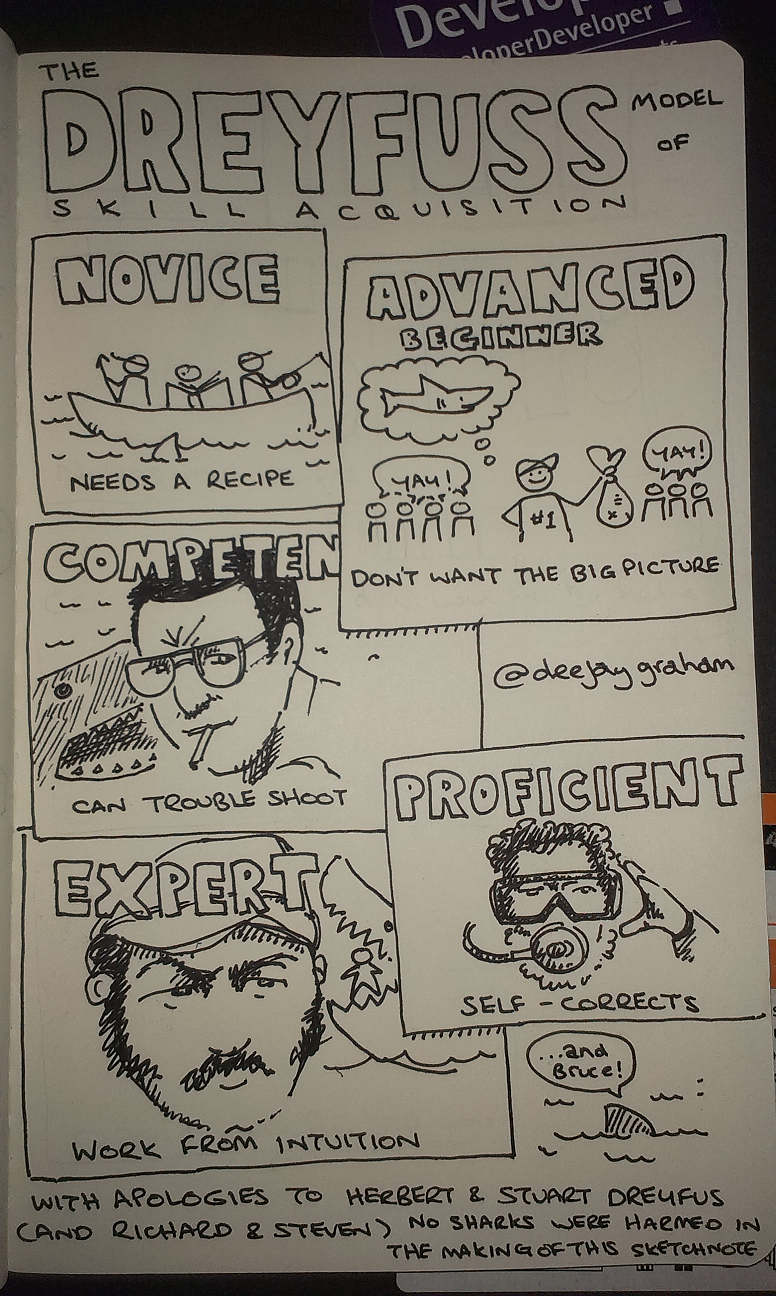 Develop
eloperDeveloper
THE
DREYFUSS MODEL
OF
SKILL ACQUISITION
NOVICE
NEEDS A RECIPE
ADVANCED
BEGINNER
YAY!
YAY!
#1
DON'T WANT THE BIG PICTURE
COMPETEN
CAN TROUBLE SHOOT
@deejaygraham
PROFICIENT
SELF-CORRECTS
EXPERT
WORK FROM INTUITION
...and
Bruce!
WITH APOLOGIES TO HERBERT & STUART DREYFUS
(AND RICHARD & STEVEN) NO SHARKS WERE HARMED IN
THE MAKING OF THIS SKETCHNOTE